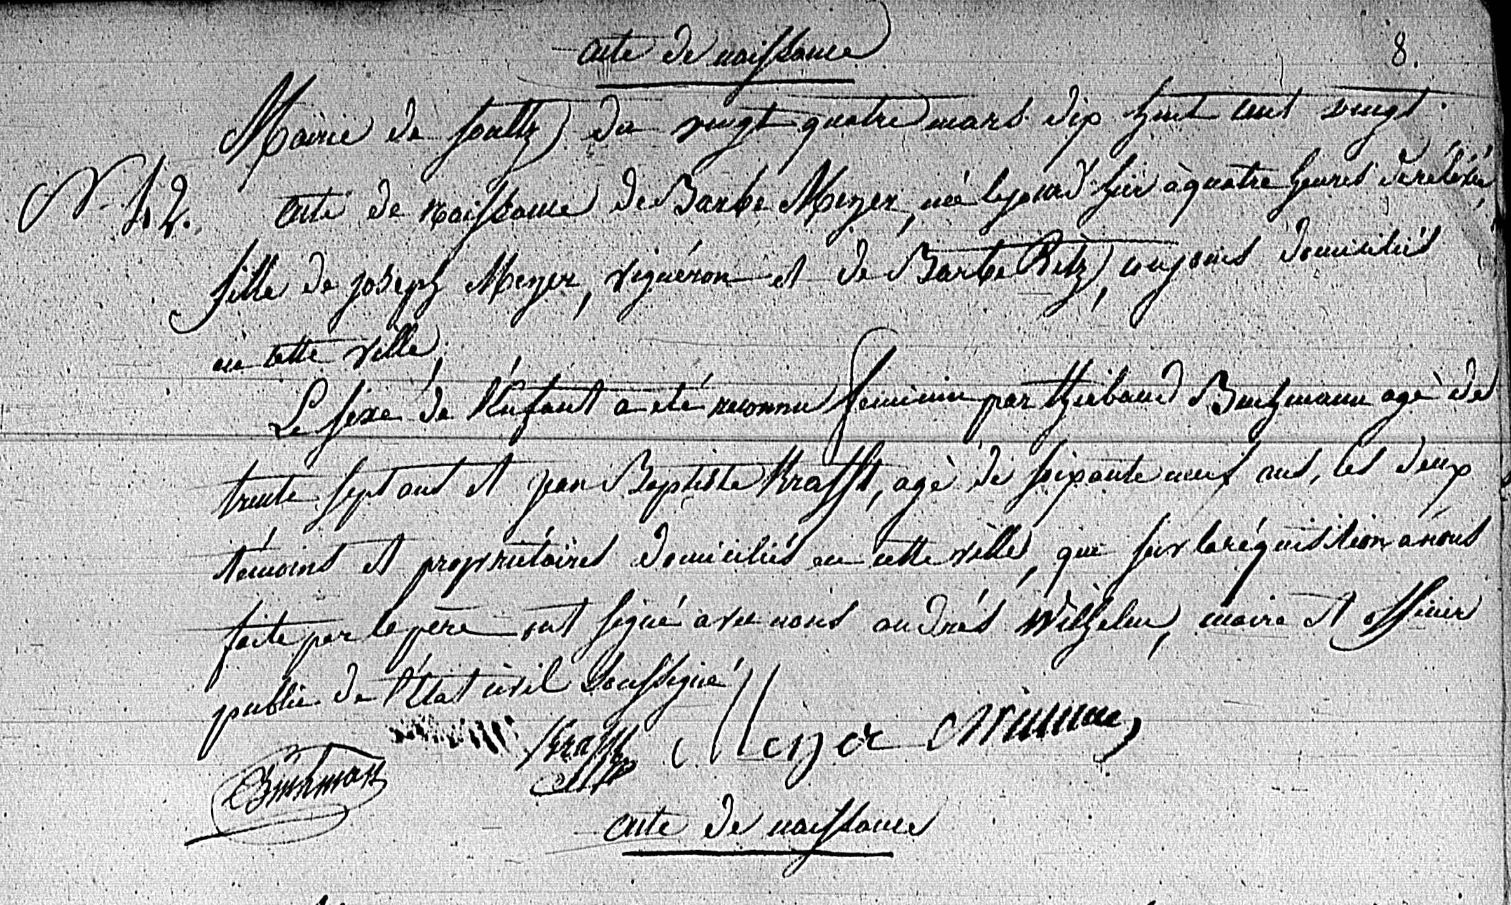 acte de naissance
8.
Mairie de Soultz du vingt quatre mars dix huit cent vingt.
N. 42.
acte de naissance de Barbe Meyer, née le jour d'hier à quatre heures de rélévée,
fille de joseph Meyer, vignéron et de Barbe Retz, conjoints domiciliés
en cette ville,
Le sexe de l'Enfant a été reconnu feminin par thiebaud Buchmann agé de
trente sept ans et jean Baptiste Krafft, agé de soixante neuf ans, les deux
témoins et propriétaires domiciliés en cette ville, que sur la réquisition à nous
faite par le père ont signé avec nous andrés Wilhelm, maire et officier
public de l'Etat civil soussigné
Krafft Meyer
Buchman
acte de naissance